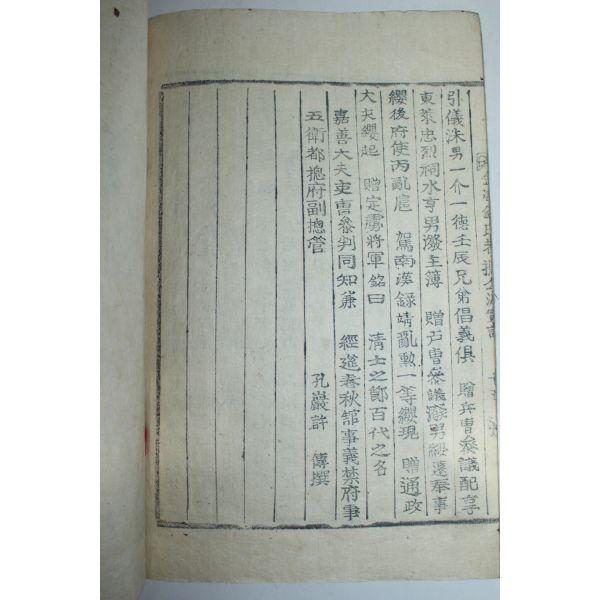 引儀洙男一介一德壬辰兄弟倡義俱 贈兵曹叅議配享
東萊忠烈祠水亨男潑主簿 贈戶曹叅議潑男纓還奉事
纓後府使丙亂扈 駕南漢錄靖亂勳一等纓現 贈通政
大夫纓起 贈定虜將軍銘曰 淸士之節百代之名
嘉善大夫吏曹叅判同知兼 經筵春秋舘事義禁府事
五衛都摠府副摠管 孔巖許 傳撰